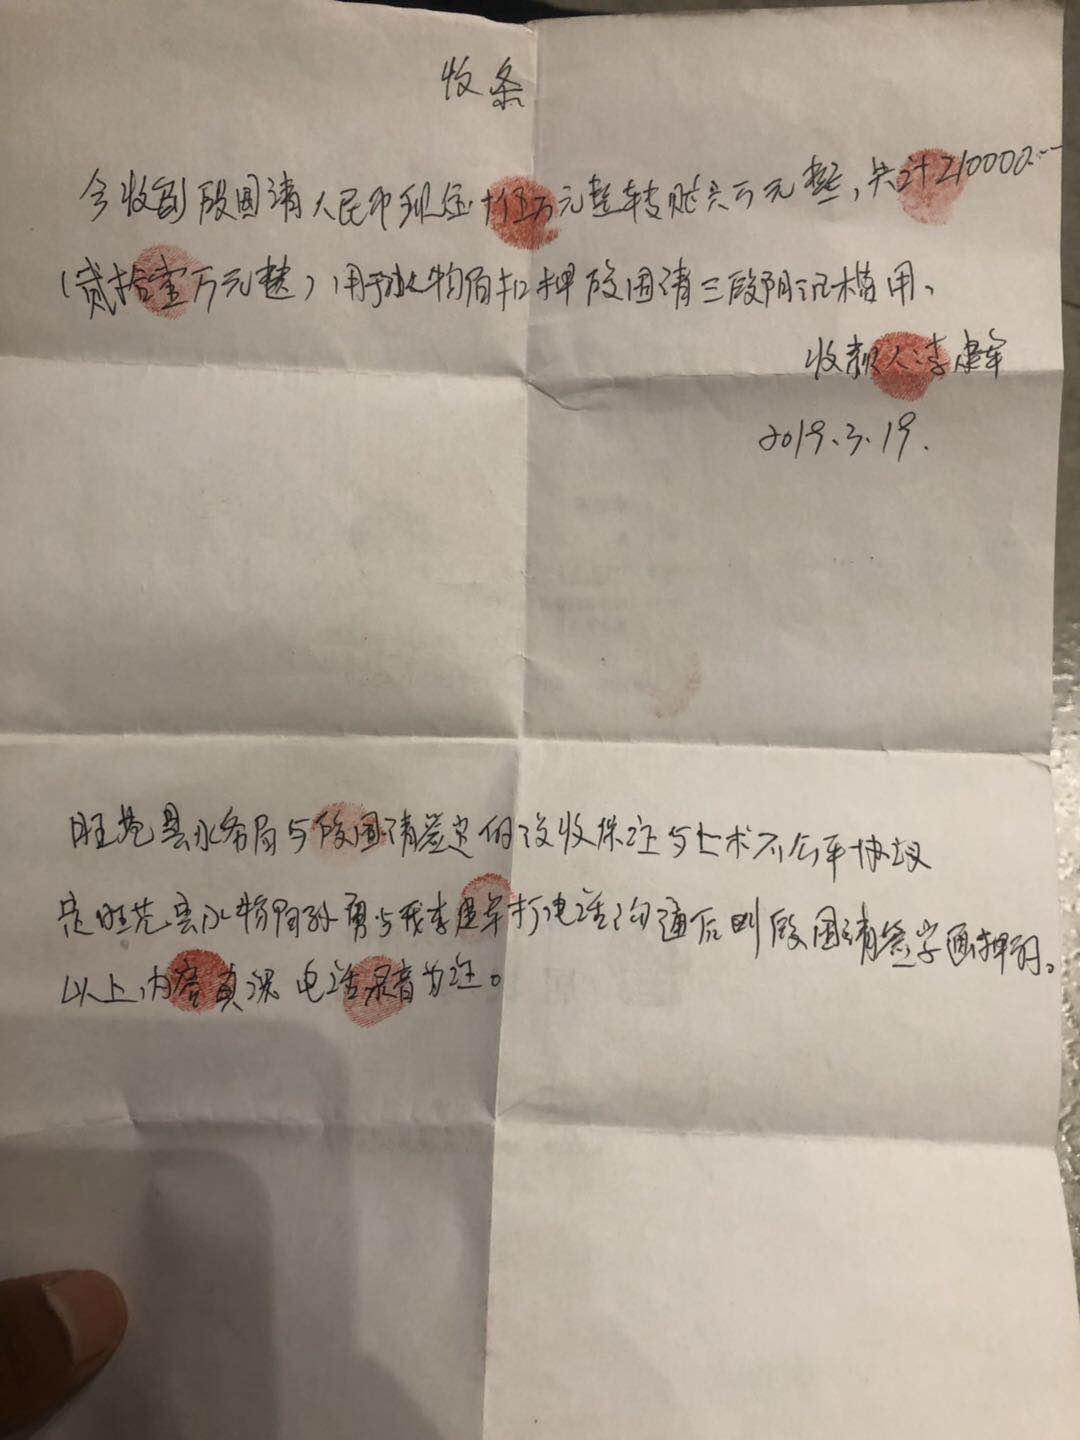 收条
今收到段国清人民币现金拾伍万元整转账六万元整，共计210000.--
（贰拾壹万元整）用于水物局扣押段国清三段阴江横用。
收款人：李建军
2019.3.19.
旺苍县水务局与段国清签定的没收保证与上术不公平协议
是旺苍县水物局孙勇与我李建军打电话沟通后叫段国清签字画押的。
以上内容真实 电话录音为证。